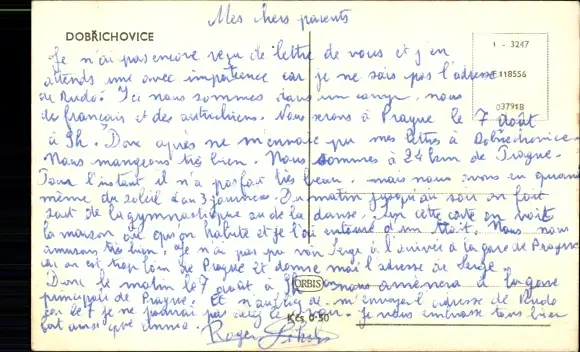 Mes chers parents
DOBŘICHOVICE
1 - 3247
118556
03791B
Je n'ai pas encore reçu de lettre de vous et j'en
attends une avec impatience car je ne sais pas l'adresse
de Rudo. Ici nous sommes dans un camp, nous
des français et des autrichiens. Nous serons à Prague le 7 août
à 9h. Donc après ne m'envoie pas mes lettres à Dobřichovice.
Nous mangeons très bien. Nous sommes à 24 km de Prague.
Pour l'instant il n'a pas fait très beau, mais nous avons eu quand
même du soleil 2 ou 3 journées. Du matin jusqu'au soir on fait
soit de la gymnastique ou de la danse. Sur cette carte on voit
la maison où qu'on habite et je l'ai entouré d'un trait. Nous nous
amusons très bien. Je n'ai pas pu voir Serge à l'arrivée à la gare de Prague
car on est trop loin de Prague et donne moi l'adresse de Serge.
Donc le matin le 7 août à 9h nous amènera à la gare
ORBIS
principale de Prague. Et m'envoyer l'adresse de Rudo
car le 7 je ne pourrai pas Je vous embrasse tous bien
Kčs 0·50
fort ainsi que
Roger